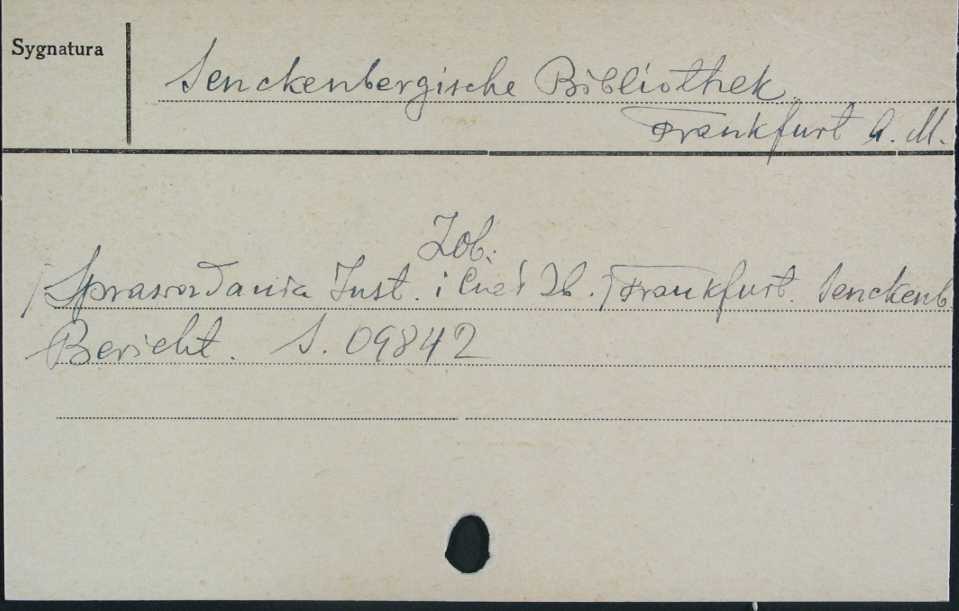 Sygnatura
Senckenbergische Bibliothek
Frankfurt a. M.
Zob.
/Sprawozdania Inst. i / Frankfurt. Senckenb.
Bericht. S. 09842